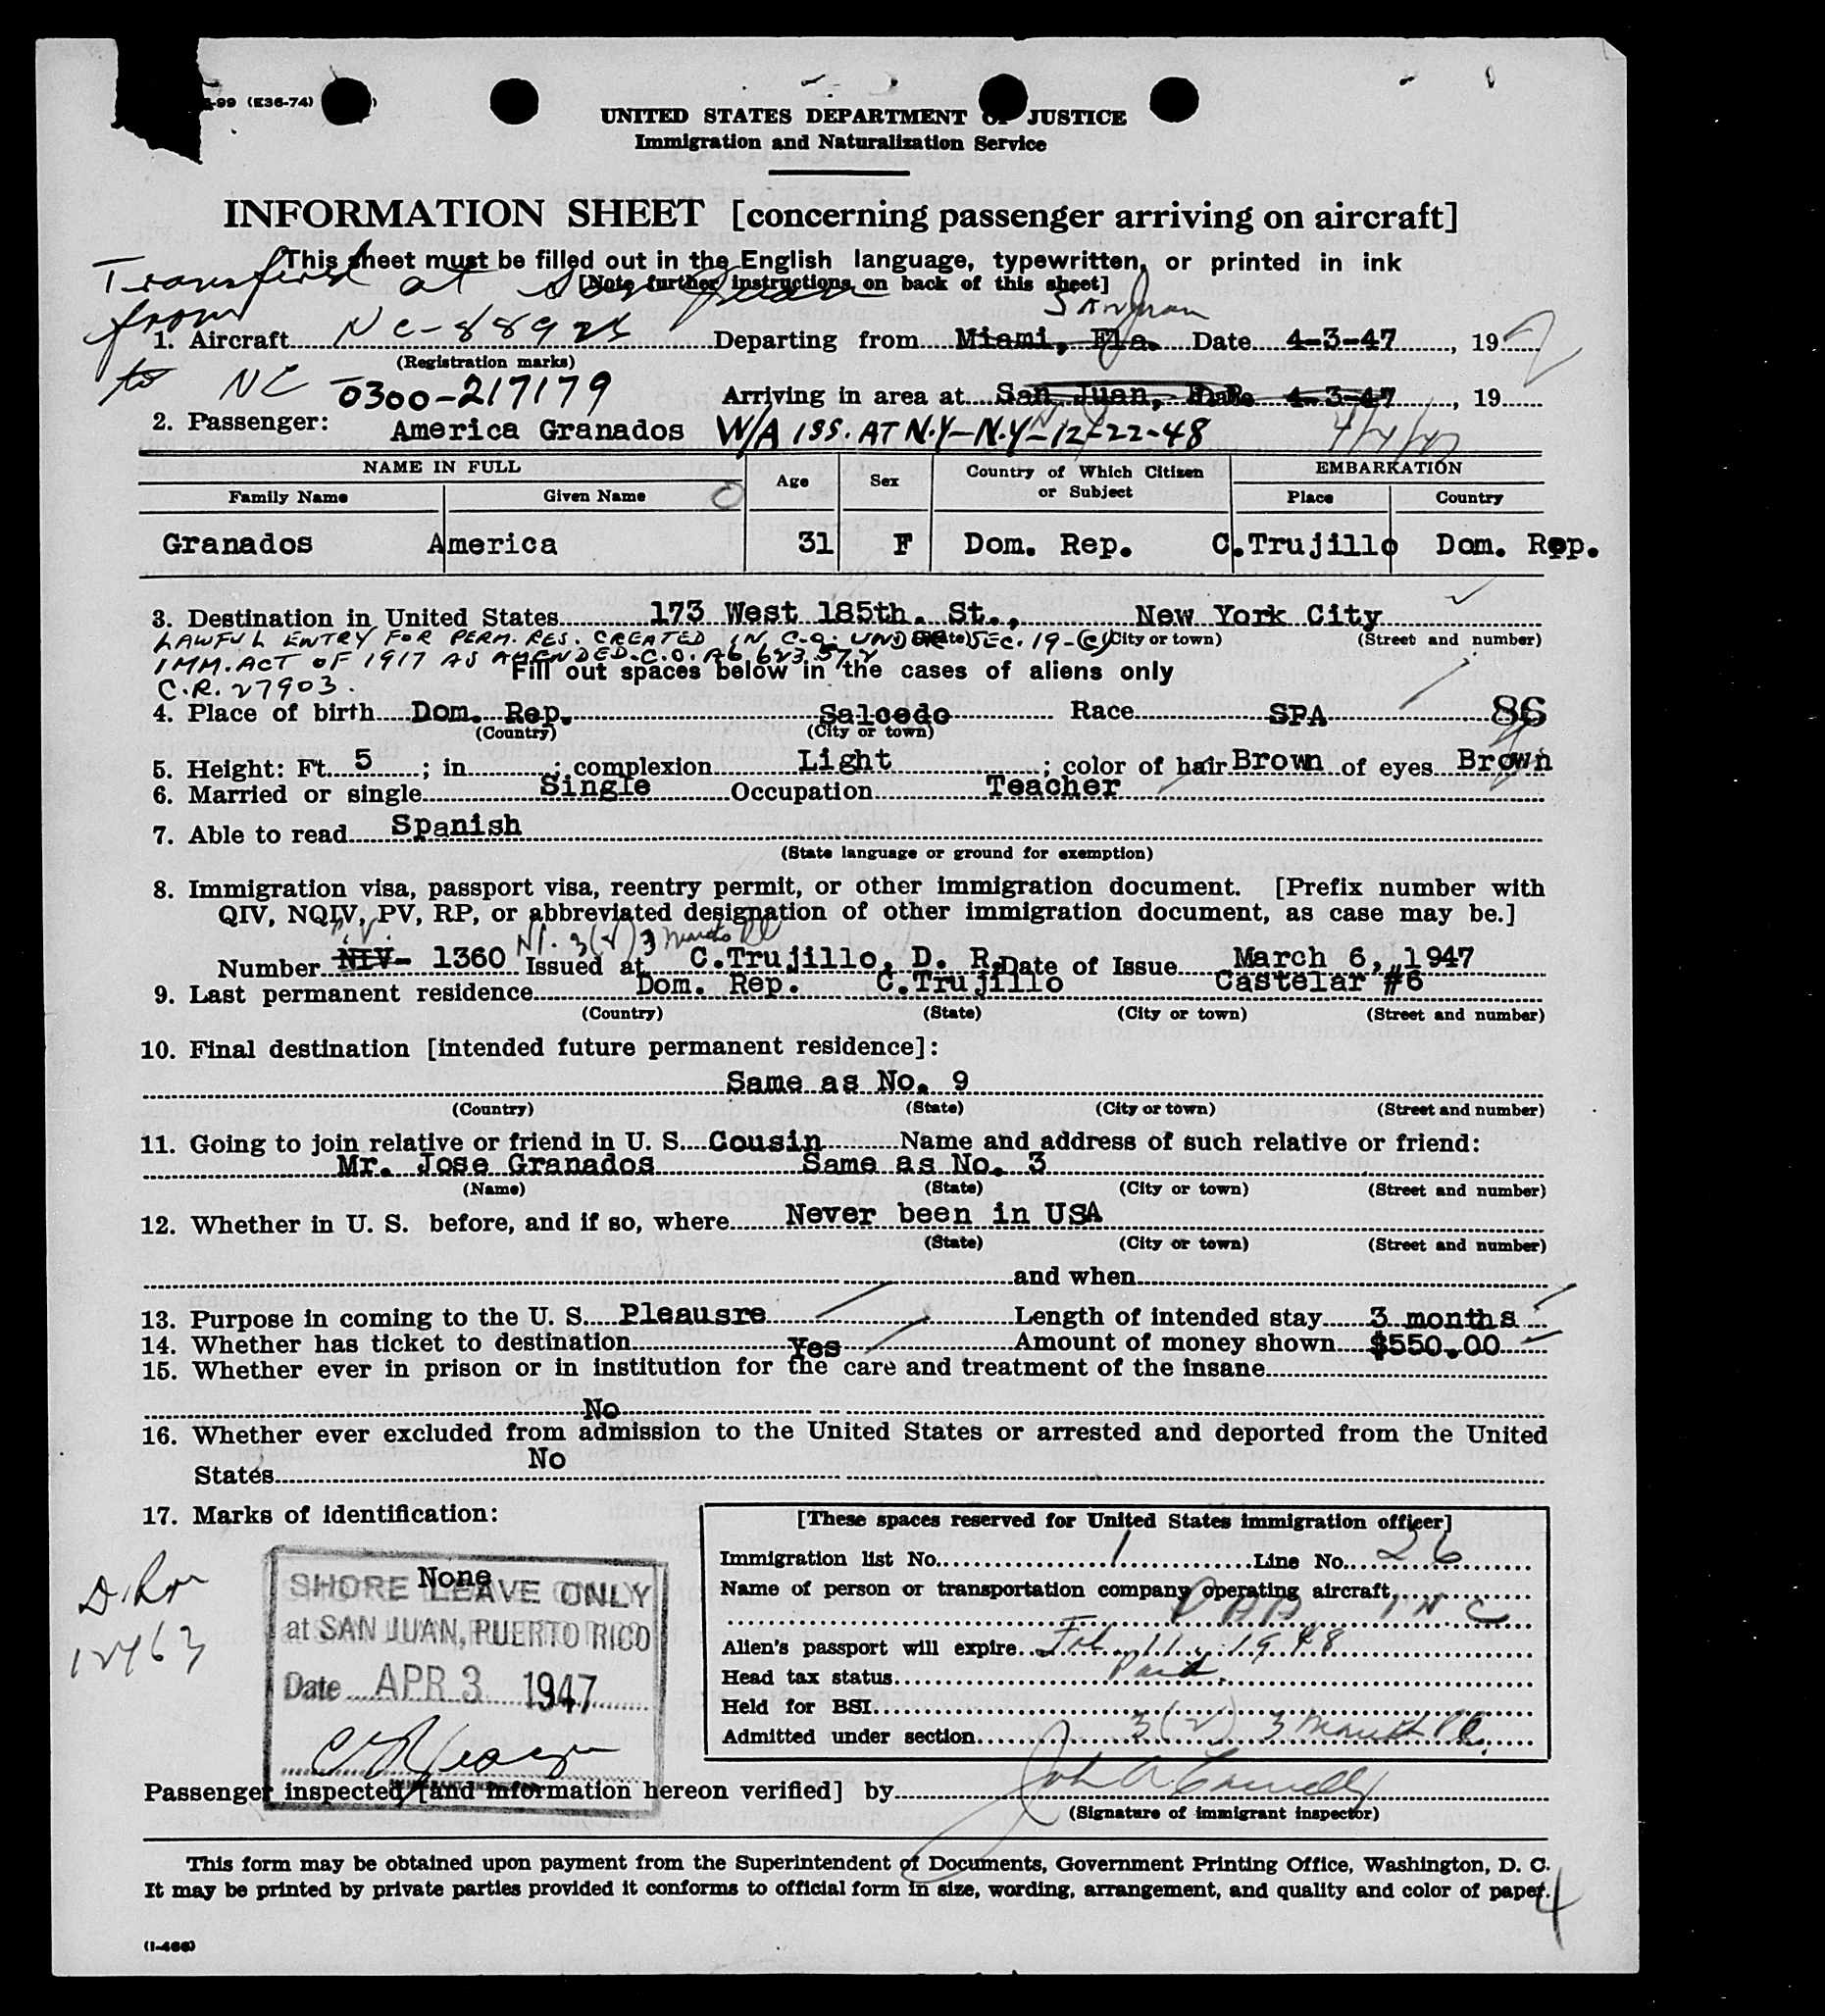 -99 (E36-74)
UNITED STATES DEPARTMENT OF JUSTICE
Immigration and Naturalization Service
INFORMATION SHEET [concerning passenger arriving on aircraft]
This sheet must be filled out in the English language, typewritten, or printed in ink
[Note further instructions on back of this sheet]
Transfered at San Juan
from
San Juan
1. Aircraft NC-88925 Departing from Miami, Fla. Date 4-3-47, 19
(Registration marks)
to NC 0300-217179 Arriving in area at San Juan, P.R. Date 4-3-47, 19
2. Passenger: America Granados W/A ISS. AT N.Y-N.Y-12-22-48 4/4/47
NAME IN FULL Age Sex Country of Which Citizen or Subject EMBARKATION
Family Name Given Name Place Country
Granados America 31 F Dom. Rep. C.Trujillo Dom. Rep.
3. Destination in United States 173 West 185th. St., New York City
(State) (City or town) (Street and number)
LAWFUL ENTRY FOR PERM. RES. CREATED IN C.O. UNDER SEC. 19-(c)
IMM. ACT OF 1917 AS AMENDED. C.O. A6 623 572
C.R. 27903.
Fill out spaces below in the cases of aliens only
4. Place of birth Dom. Rep. Salcedo Race SPA 86
(Country) (City or town)
5. Height: Ft. 5; in; complexion Light; color of hair Brown of eyes Brown
6. Married or single Single Occupation Teacher
7. Able to read Spanish
(State language or ground for exemption)
8. Immigration visa, passport visa, reentry permit, or other immigration document. [Prefix number with
QIV, NQIV, PV, RP, or abbreviated designation of other immigration document, as case may be.]
P.V. 3(2) 3 months
Number NIV- 1360 Issued at C.Trujillo, D. R. Date of Issue March 6, 1947
9. Last permanent residence Dom. Rep. C.Trujillo Castelar #6
(Country) (State) (City or town) (Street and number)
10. Final destination [intended future permanent residence]:
Same as No. 9
(Country) (State) (City or town) (Street and number)
11. Going to join relative or friend in U. S. Cousin Name and address of such relative or friend:
Mr. Jose Granados Same as No. 3
(Name) (State) (City or town) (Street and number)
12. Whether in U. S. before, and if so, where Never been in USA
(State) (City or town) (Street and number)
and when
13. Purpose in coming to the U. S. Pleausre Length of intended stay 3 months
14. Whether has ticket to destination Yes Amount of money shown $550.00
15. Whether ever in prison or in institution for the care and treatment of the insane
No
16. Whether ever excluded from admission to the United States or arrested and deported from the United
States No
17. Marks of identification:
None
SHORE LEAVE ONLY
at SAN JUAN, PUERTO RICO
Date APR 3 1947
12463
[These spaces reserved for United States immigration officer]
Immigration list No. 1 Line No. 26
Name of person or transportation company operating aircraft
PAA INC
Alien's passport will expire Feb. 11, 1948
Head tax status Paid.
Held for BSI
Admitted under section 3(2) 3 months
Passenger inspected [and information hereon verified] by John A Connelly
(Signature of immigrant inspector)
This form may be obtained upon payment from the Superintendent of Documents, Government Printing Office, Washington, D. C.
It may be printed by private parties provided it conforms to official form in size, wording, arrangement, and quality and color of paper.
4
(I-466)